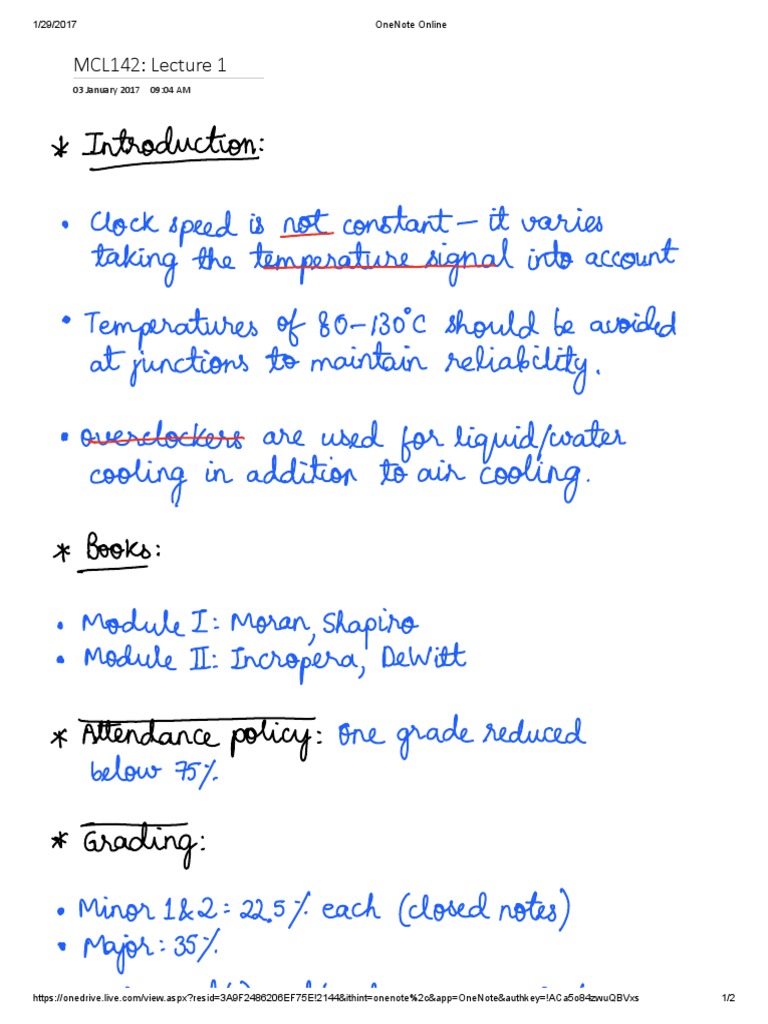 1/29/2017 OneNote Online
MCL142: Lecture 1
03 January 2017 09:04 AM
* Introduction:
• Clock speed is not constant – it varies
taking the temperature signal into account
• Temperatures of 80–130°C should be avoided
at junctions to maintain reliability.
• overclockers are used for liquid/water
cooling in addition to air cooling.
* Books:
• Module I: Moran, Shapiro
• Module II: Incropera, DeWitt
* Attendance policy: One grade reduced
below 75%
* Grading:
• Minor 1&2: 22.5% each (closed notes)
• Major: 35%
https://onedrive.live.com/view.aspx?resid=3A9F2486206EF75E!2144&ithint=onenote%2c&app=OneNote&authkey=!ACa5o84zwuQBVxs 1/2